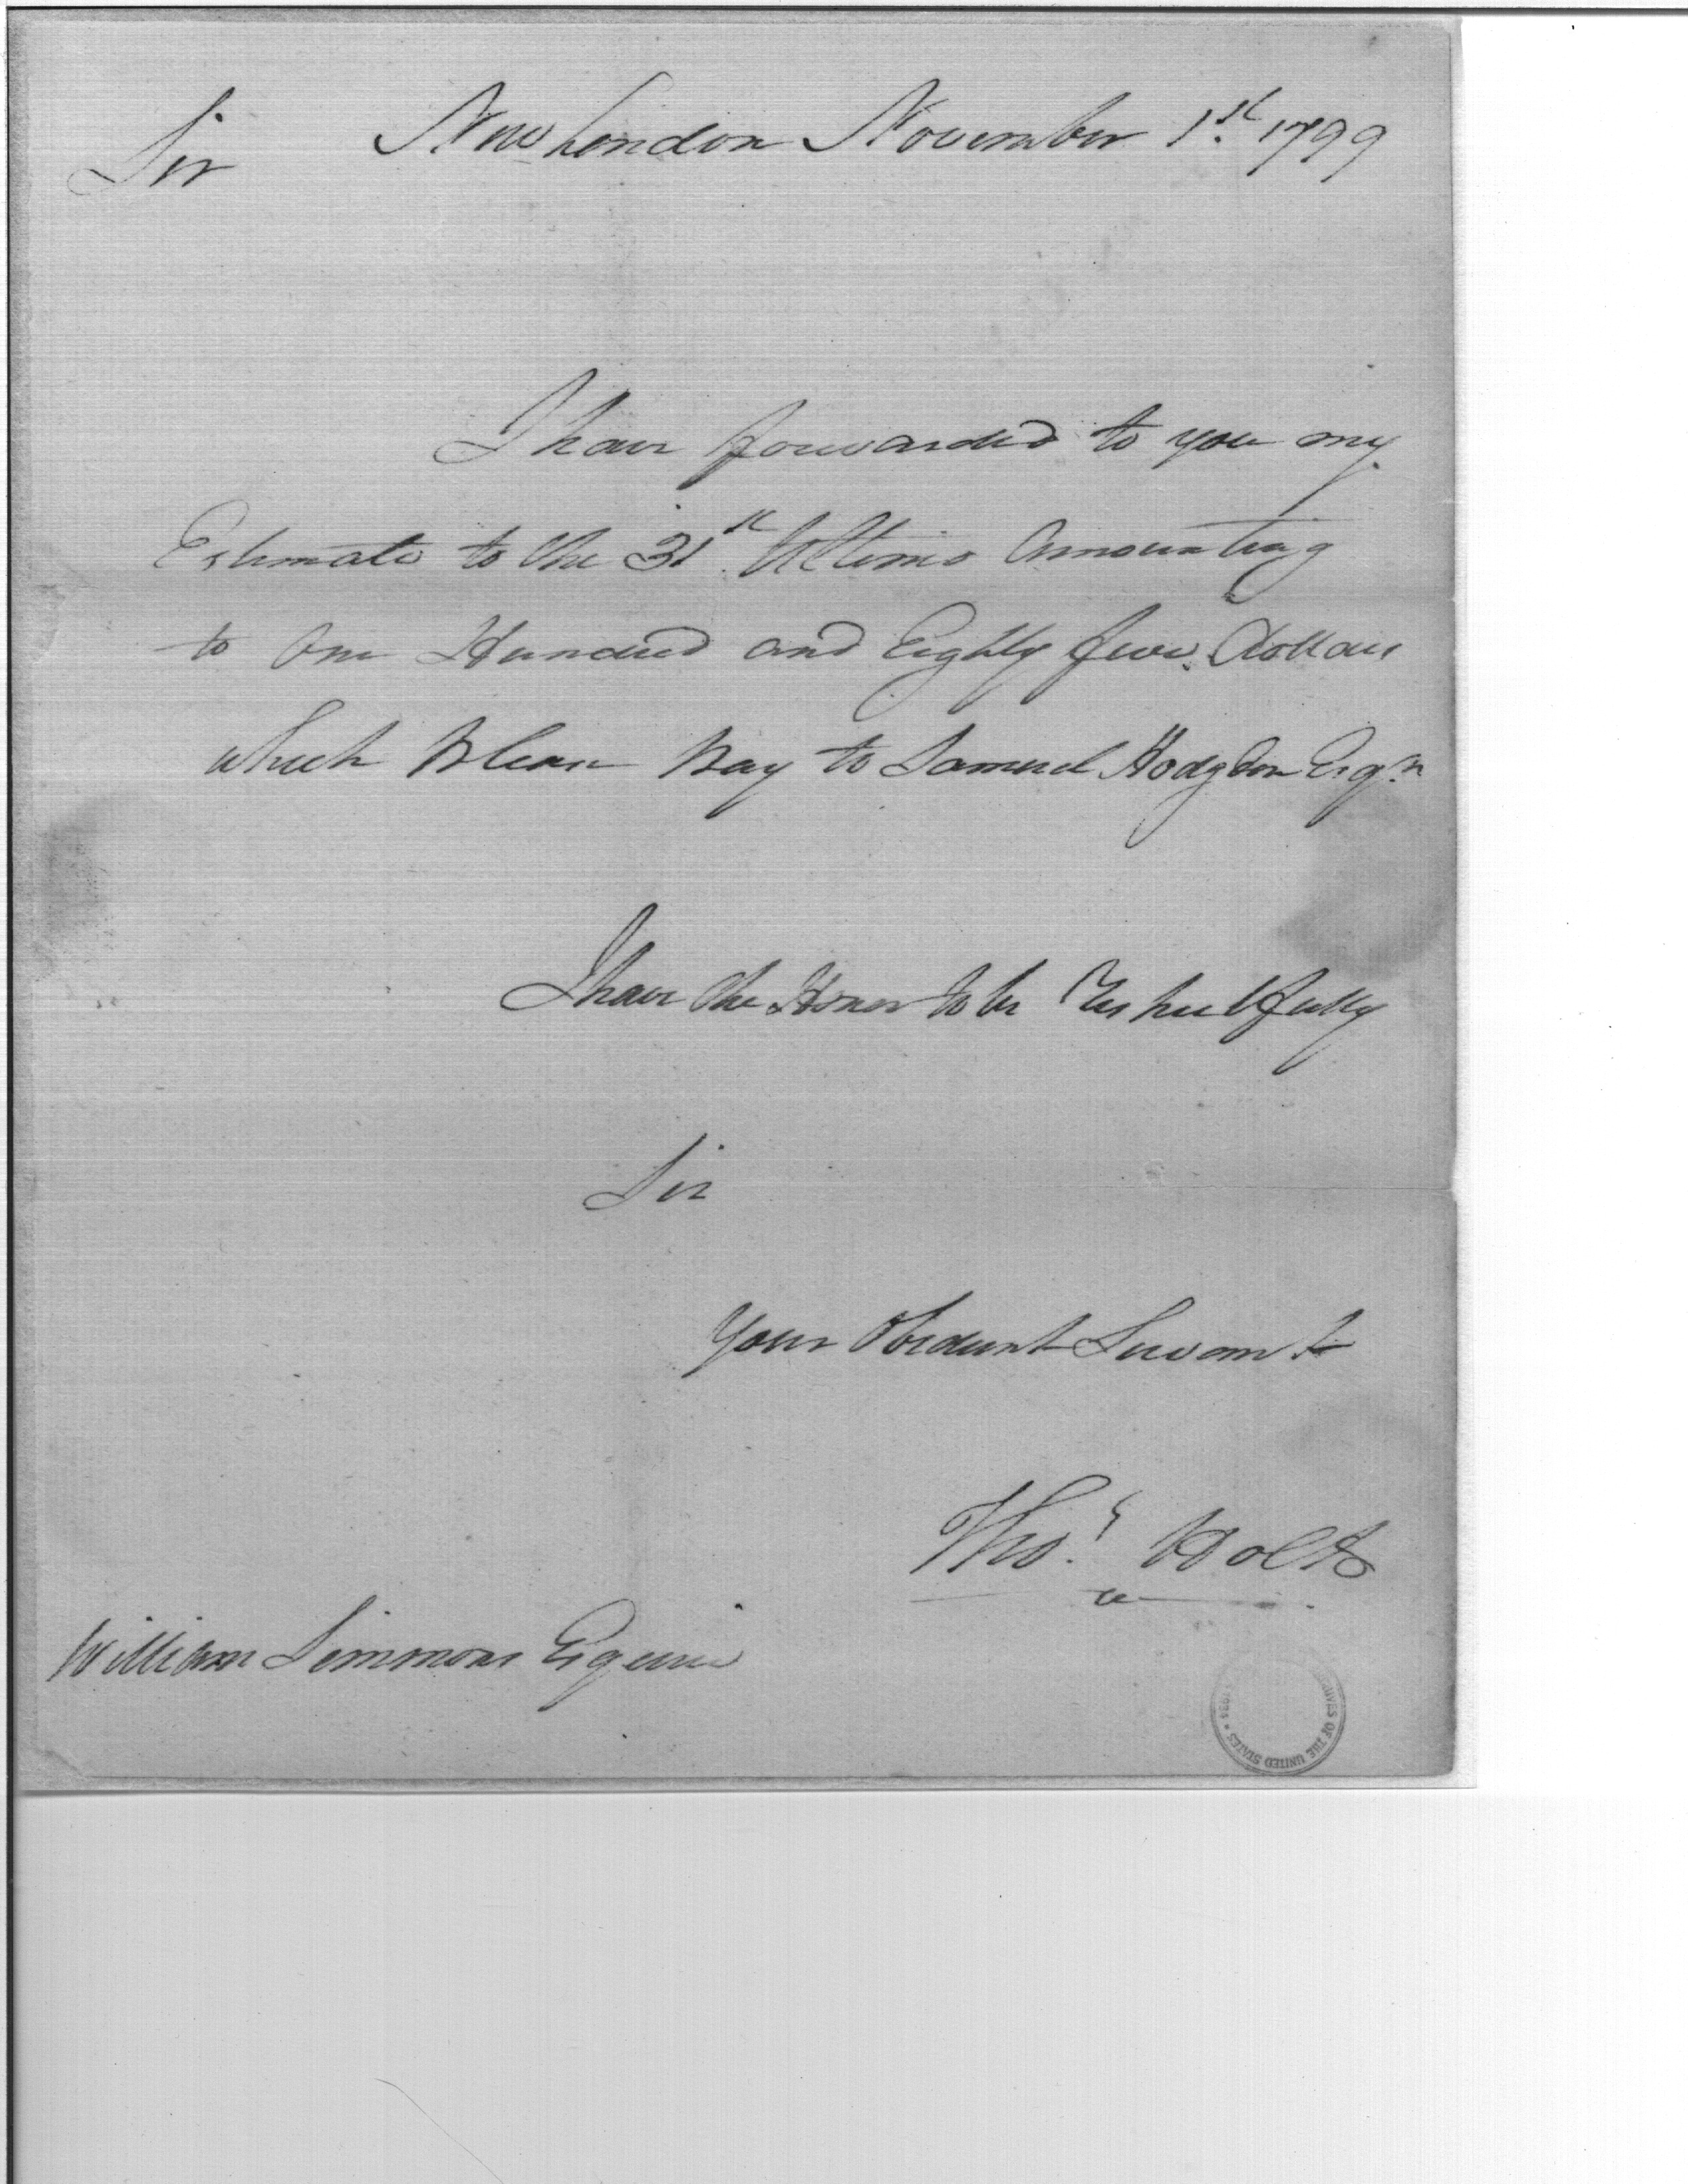 Sir New London November 1st. 1799
I have forwarded to you my
Estimate to the 31st. Ultimo Amounting
to One Hundred and Eighty five Dollars
which Please Pay to Samuel Hodgdon Esqr.
I have the Honor to be Respectfully
Sir
Your Obedient Servant
Thos. Holt
William Simmons Esquire
ARCHIVES OF THE UNITED STATES * 1934